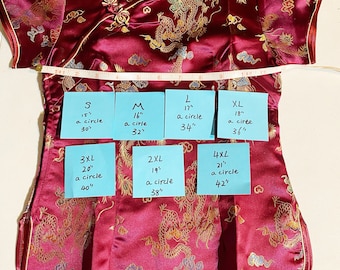 S
15"
a circle
30"
M
16"
a circle
32"
L
17"
a circle
34"
XL
18"
a circle
36"
3XL
20"
a circle
40"
2XL
19"
a circle
38"
4XL
21"
a circle
42"